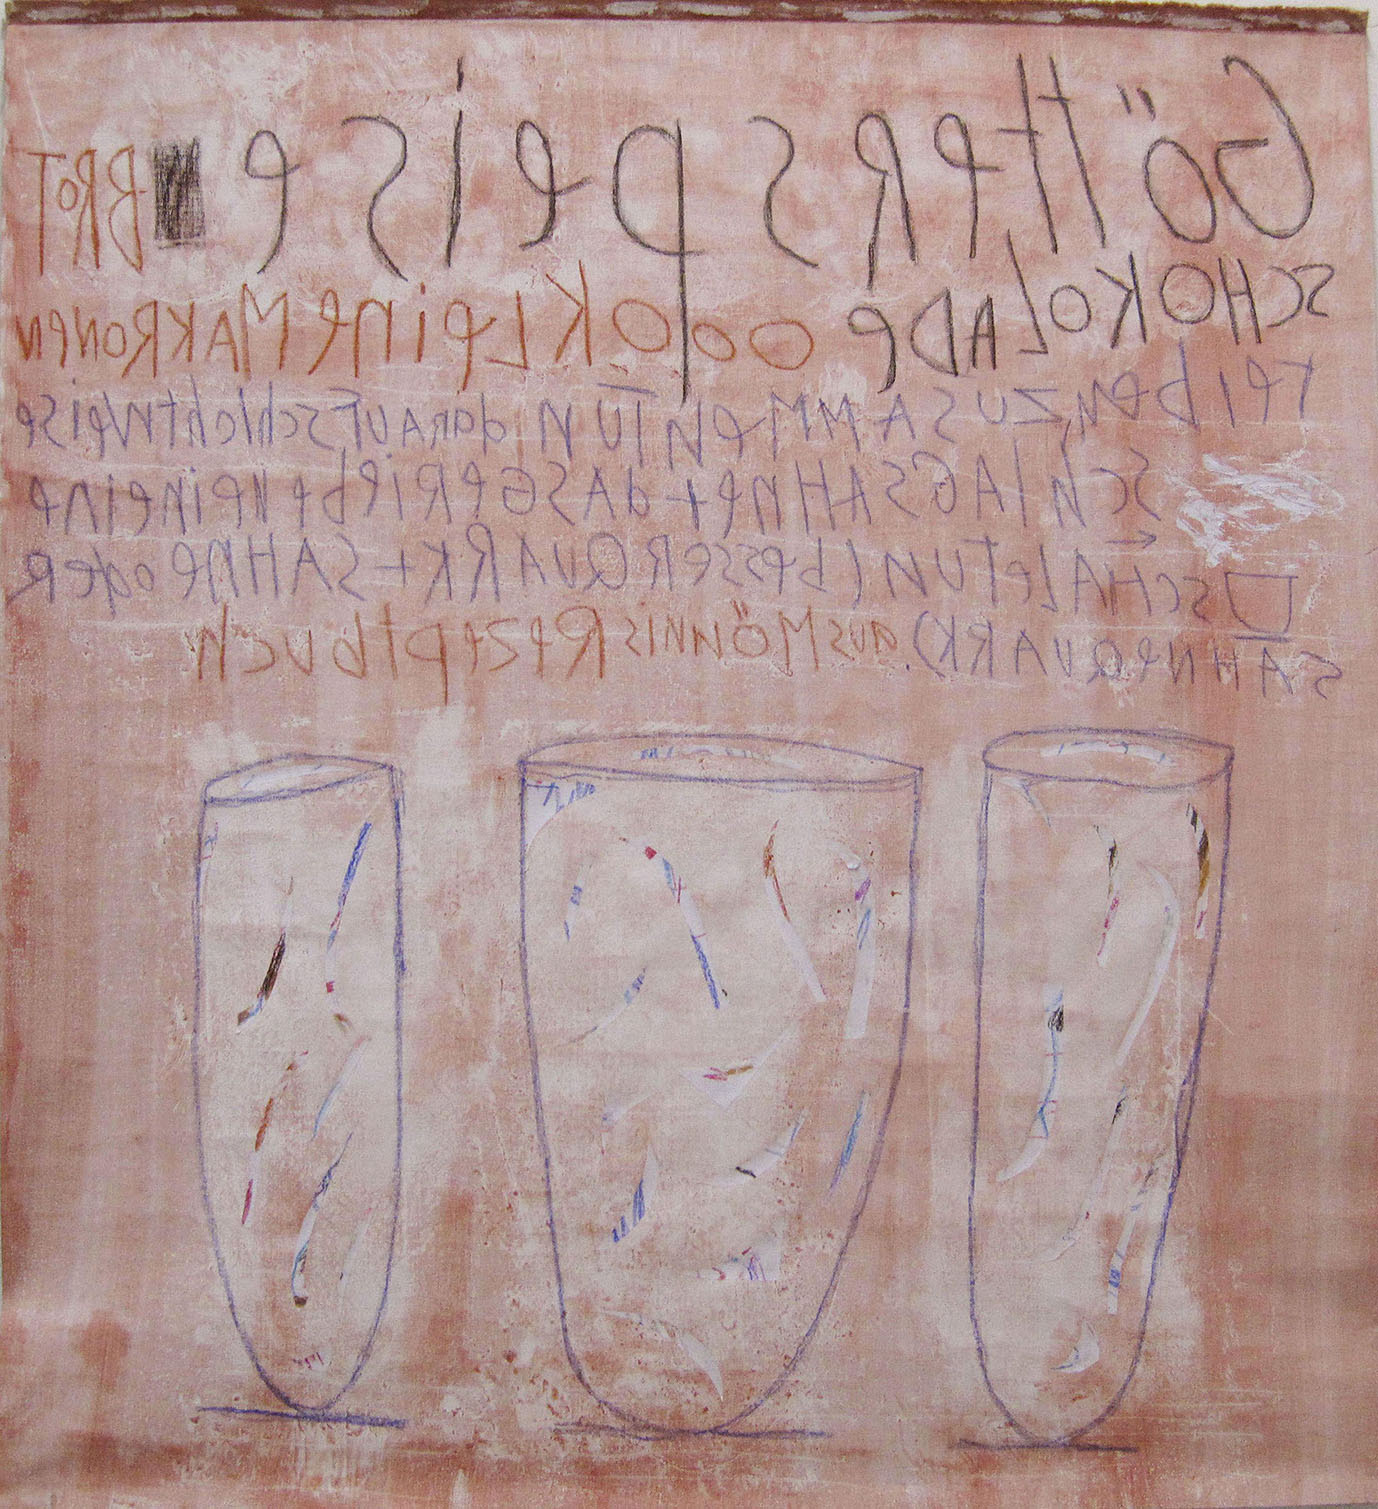 GötteRspeise BRoT
SCHOKOLADe OOO KLeineMAKRONeN
reibeN, ZUSAMMeNTUN darAUFSchichtWeise
SchlAGSAHne + dASGeRIebeneineine
SCHALeTUN (besseRQUARK + SAHNe odeR
SAHNeQUARK). ausMönnisRezeptbuch